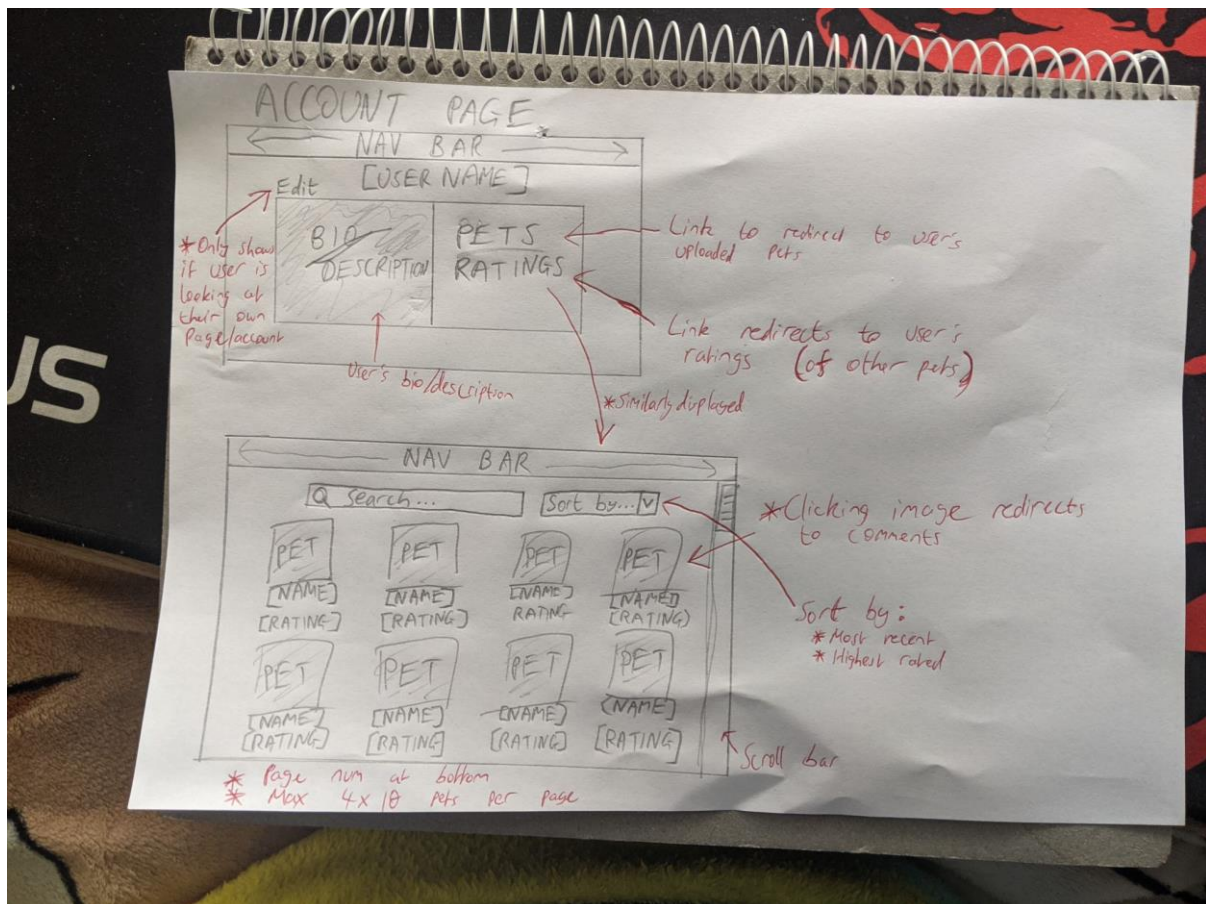 ACCOUNT PAGE
*
NAV BAR
[USER NAME]
Edit
BIO
DESCRIPTION
PETS
RATINGS
*Only shows
if user is
looking at
their own
Page/account
User's bio/description
Link to redirect to user's
uploaded pets
Link redirects to user's
ratings (of other pets)
*Similarly displayed
NAV BAR
Search...
Sort by... v
PET PET PET PET
[NAME] [NAME] [NAME] [NAME]
[RATING] [RATING] RATING [RATING]
PET PET PET PET
[NAME] [NAME] [NAME] [NAME]
[RATING] [RATING] [RATING] [RATING]
*Clicking image redirects
to comments
Sort by:
* Most recent
* Highest rated
Scroll bar
* Page num at bottom
* Max 4x10 pets per page
US